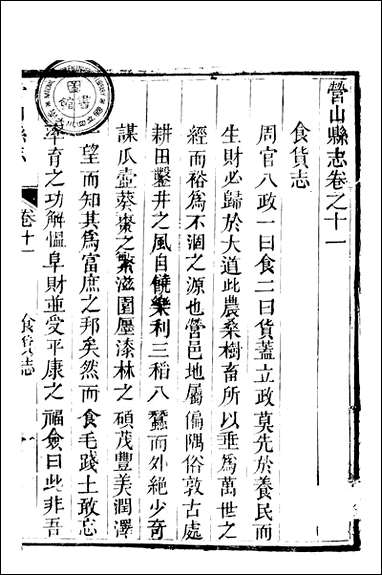 營山縣志卷之十一
食貨志
周官八政一曰食二曰貨蓋立政莫先於養民而
生財必歸於大道此農桑樹畜所以垂為萬世之
經而裕為不涸之源也營邑地屬偏隅俗敦古處
耕田鑿井之風自饒樂利三稻八蠶而外絶少奇
謀瓜壺葵棗之繁滋園廛漆林之碩茂豐美潤澤
望而知其為富庶之邦矣然而食毛踐土敢忘
率育之功解慍阜財並受平康之福僉曰此非吾
卷十一
食貨志
一